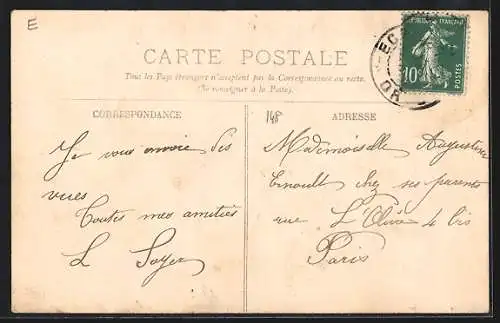 E
CARTE POSTALE
Tous les Pays étrangers n'acceptent pas la Correspondance au recto.
(Se renseigner à la Poste).
CORRESPONDANCE
Je vous envoie des
vues
Toutes mes amitiés
L Soyer
148
ADRESSE
Mademoiselle Augustine
chez ses parents
rue L'Olive 4 bis
Paris
10c
POSTES